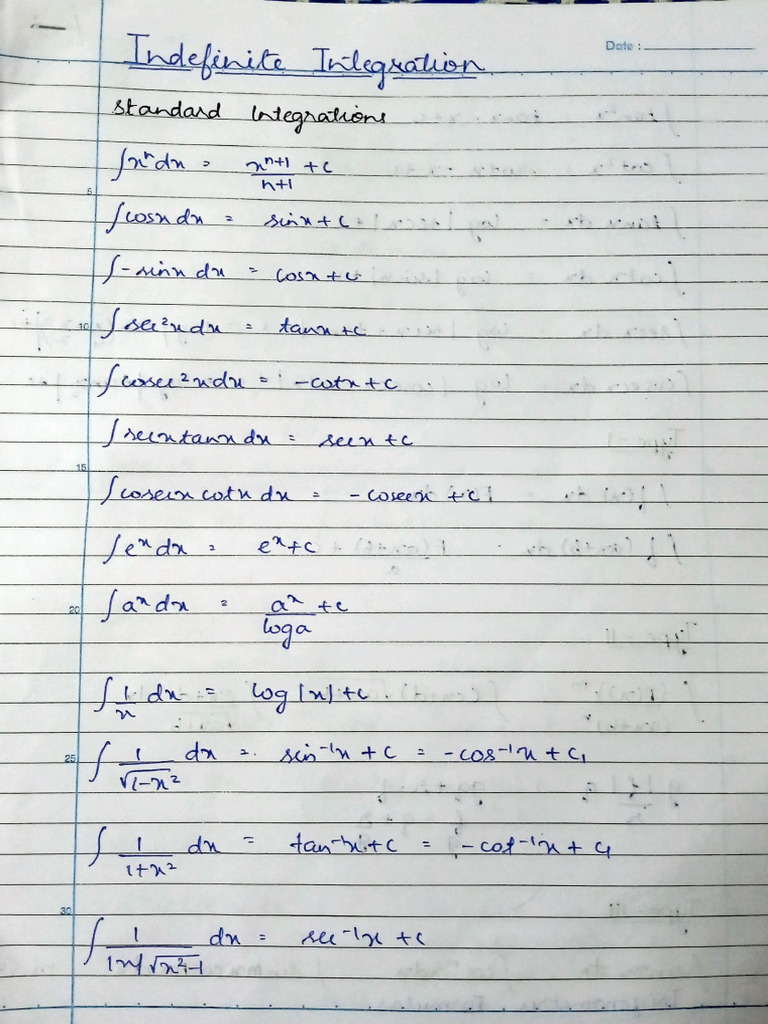 Date :
Indefinite Integration
Standard Integrations
∫xⁿdx = xⁿ⁺¹/n+1 + c
5
∫cosx dx = sinx + c
∫-sinx dx = cosx + c
10 ∫sec²x dx = tanx + c
∫cosec²x dx = -cotx + c
∫secxtanx dx = secx + c
15
∫cosecx cotx dx = -cosecx + c
∫eˣdx = eˣ+c
20 ∫aˣdx = aˣ/loga + c
∫1/x dx = log|x| + c
25 ∫1/√1-x² dx = sin⁻¹x + c = -cos⁻¹x + c₁
∫1/1+x² dx = tan⁻¹x + c = -cot⁻¹x + c₁
30
∫1/|x|√x²-1 dx = sec⁻¹x + c